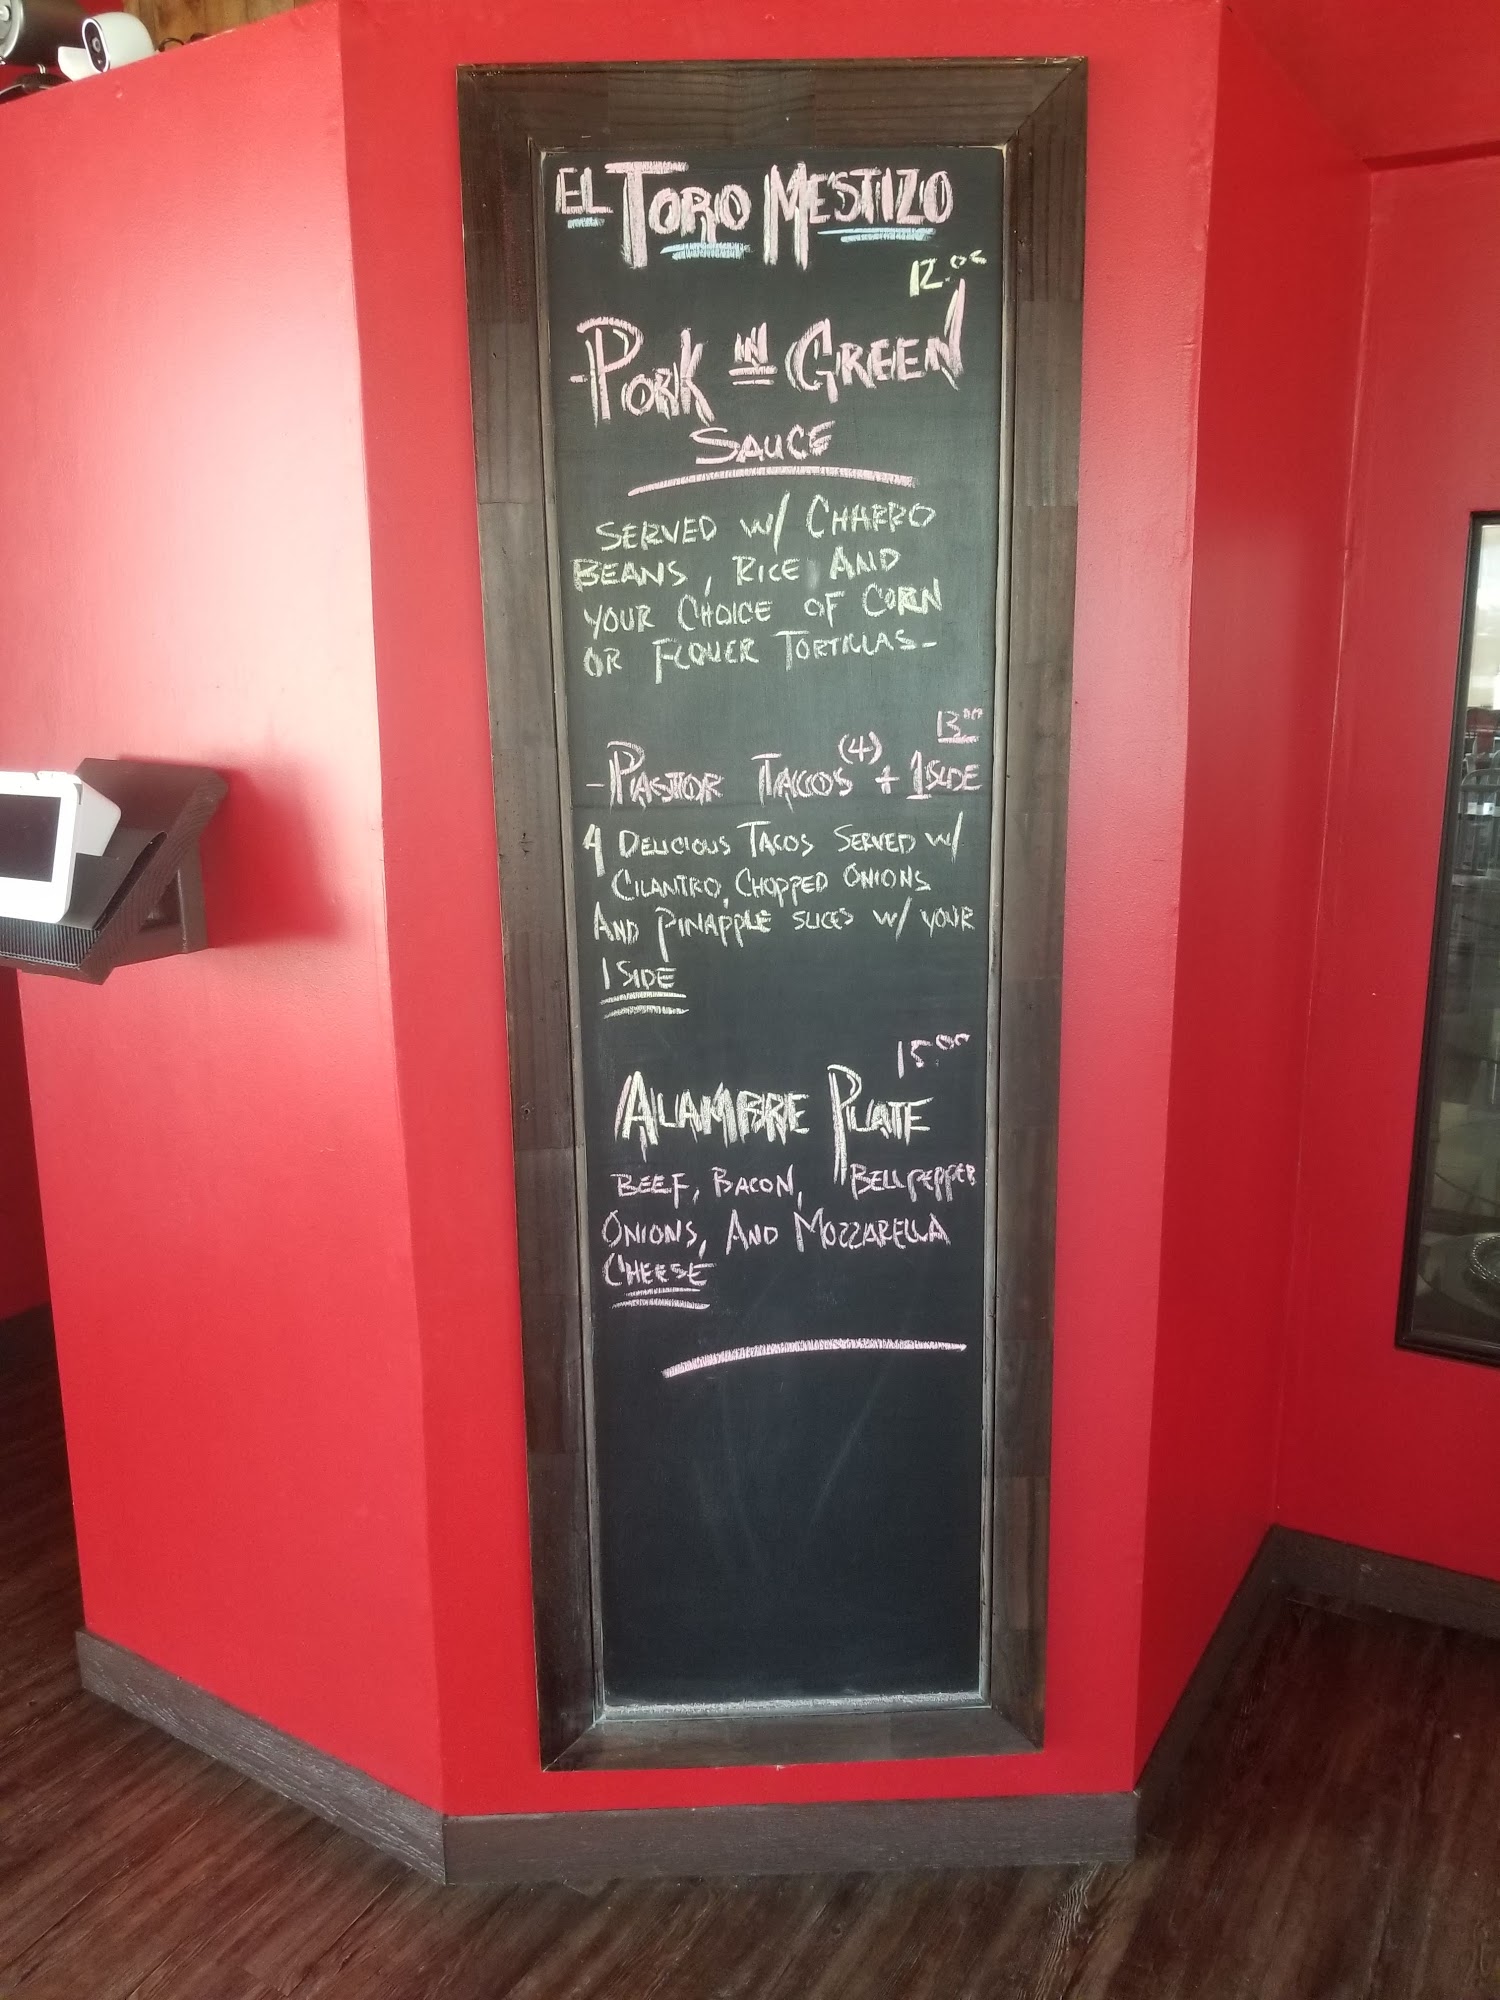 EL TORO MESTIZO
12.00
-PORK IN GREEN
SAUCE
SERVED W/ CHARRO
BEANS, RICE AND
YOUR CHOICE OF CORN
OR FLOUER TORTILLAS-
13.00
-PASTOR TACOS (4) + 1 SIDE
4 DELICIOUS TACOS SERVED W/
CILANTRO, CHOPPED ONIONS
AND PINAPPLE SLICES W/ YOUR
1 SIDE
15.00
ALAMBRE PLATE
BEEF, BACON, BELLPEPPER
ONIONS, AND MOZZARELLA
CHEESE